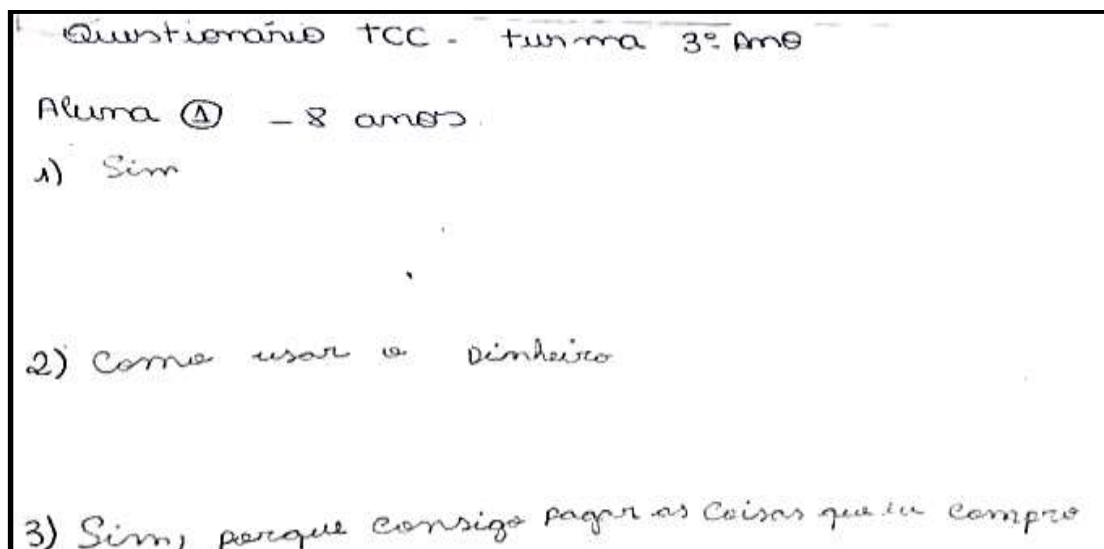 Questionário TCC - turma 3º Ano
Aluna ① - 8 anos.
1) Sim
2) Como usar o Dinheiro
3) Sim, porque consigo pagar as Coisas que eu compro